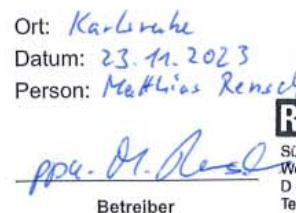 Ort: Karlsruhe
Datum: 23.11.2023
Person: Matthias Rensch
R
ppa. M. Rensch
Sü
We
D
Te
Betreiber